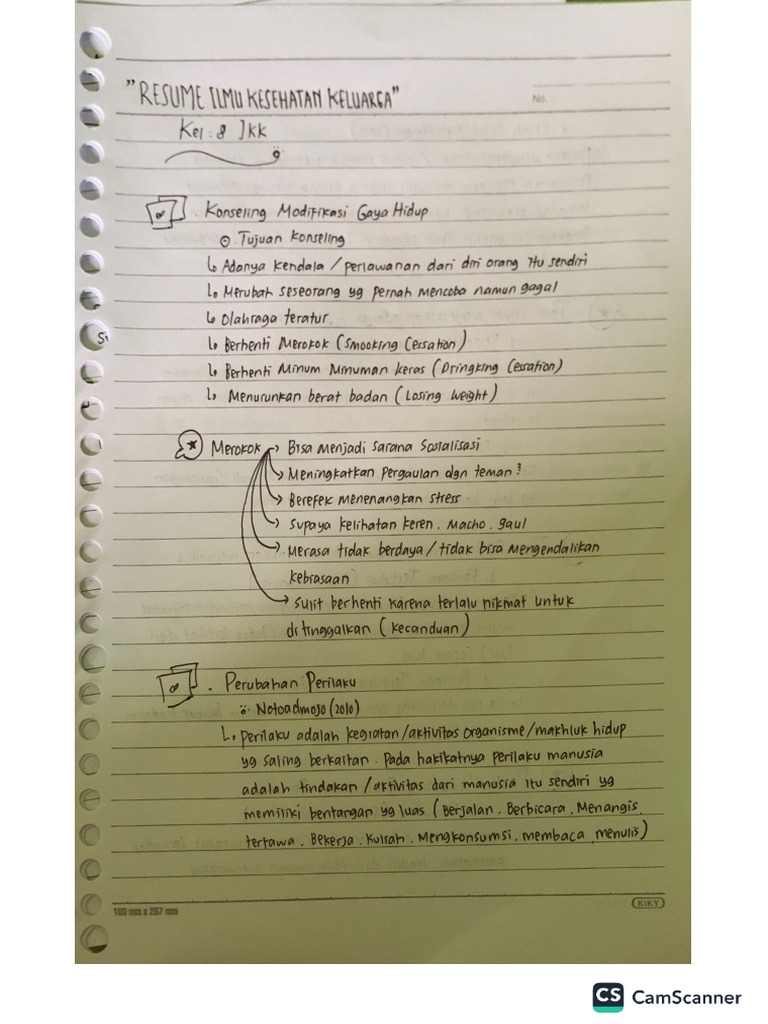 "RESUME ILMU KESEHATAN KELUARGA"
No.
Kel : 8 Ikk
Konseling Modifikasi Gaya Hidup
Tujuan Konseling
Adanya kendala / perlawanan dari diri orang itu sendiri
Merubah seseorang yg pernah mencoba namun gagal
Olahraga teratur
Berhenti Merokok (Smooking Cessation)
Berhenti Minum Minuman keras (Dringking Cessation)
Menurunkan berat badan (Losing Weight)
Merokok → Bisa menjadi sarana Sosialisasi
Meningkatkan pergaulan dgn teman²
Berefek menenangkan stress
Supaya kelihatan keren. Macho. gaul
Merasa tidak berdaya / tidak bisa mengendalikan
kebiasaan
Sulit berhenti karena terlalu nikmat untuk
ditinggalkan (kecanduan)
Perubahan Perilaku
Notoadmojo (2010)
Perilaku adalah kegiatan/aktivitas organisme/makhluk hidup
yg saling berkaitan. Pada hakikatnya perilaku manusia
adalah tindakan / aktivitas dari manusia itu sendiri yg
memiliki bentangan yg luas (Berjalan. Berbicara. Menangis.
tertawa. Bekerja. Kuliah. Mengkonsumsi. membaca. menulis)
KIKY
CS CamScanner